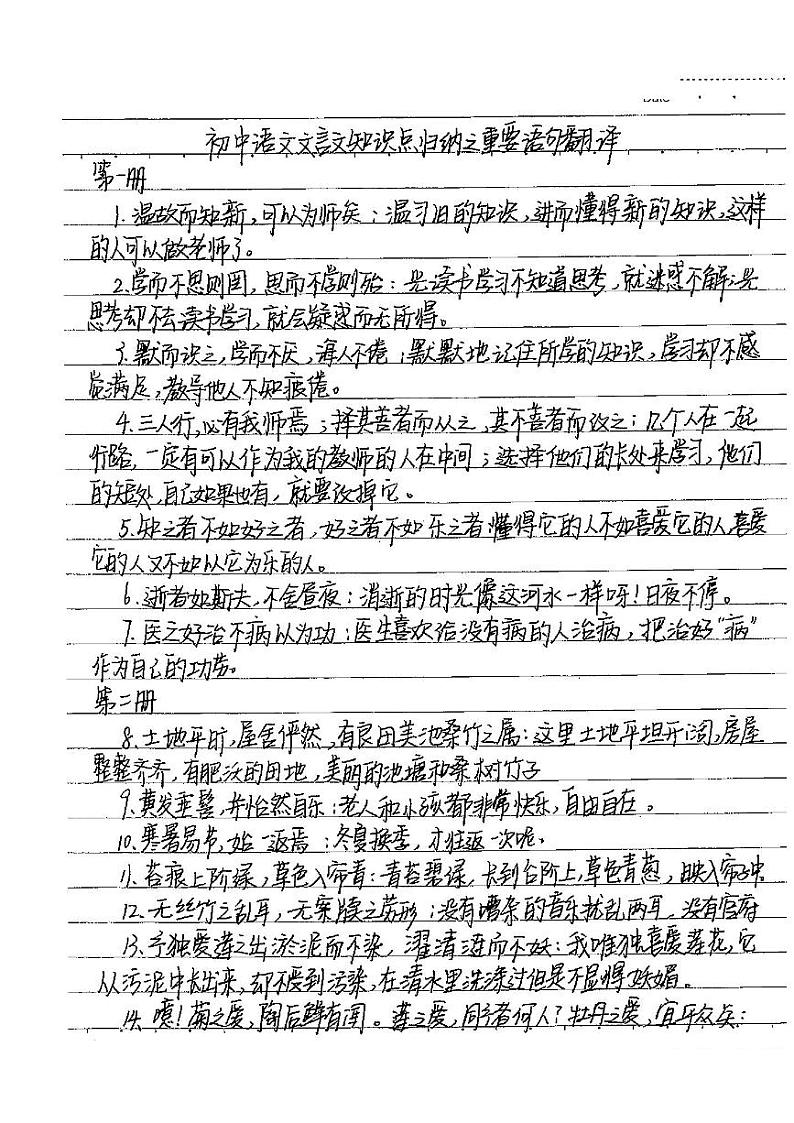 Date
初中语文文言文知识点归纳之重要语句翻译
第一册
1.温故而知新，可以为师矣：温习旧的知识，进而懂得新的知识，这样
的人可以做老师了。
2.学而不思则罔，思而不学则殆：光读书学习不知道思考，就迷惑不解；光
思考却不去读书学习，就会疑惑而无所得。
3.默而识之，学而不厌，诲人不倦：默默地记住所学的知识，学习却不感
觉满足，教导他人不知疲倦。
4.三人行，必有我师焉；择其善者而从之，其不善者而改之：几个人在一起
行路，一定有可以作为我的教师的人在中间；选择他们的长处来学习，他们
的短处，自己如果也有，就要改掉它。
5.知之者不如好之者，好之者不如乐之者：懂得它的人不如喜爱它的人，喜爱
它的人又不如以它为乐的人。
6.逝者如斯夫，不舍昼夜：消逝的时光像这河水一样呀！日夜不停。
7.医之好治不病以为功：医生喜欢给没有病的人治病，把治好“病”
作为自己的功劳。
第二册
8.土地平旷，屋舍俨然，有良田美池桑竹之属：这里土地平坦开阔，房屋
整整齐齐，有肥沃的田地，美丽的池塘和桑树竹子
9.黄发垂髫，并怡然自乐：老人和小孩都非常快乐，自由自在。
10.寒暑易节，始一返焉：冬夏换季，才往返一次呢。
11.苔痕上阶绿，草色入帘青：青苔碧绿，长到台阶上，草色青葱，映入帘子中
12.无丝竹之乱耳，无案牍之劳形：没有嘈杂的音乐扰乱两耳，没有官府
13.予独爱莲之出淤泥而不染，濯清涟而不妖：我唯独喜爱莲花，它
从污泥中长出来，却不受到污染，在清水里洗涤过但是不显得妖媚。
14.噫！菊之爱，陶后鲜有闻。莲之爱，同予者何人？牡丹之爱，宜乎众矣：